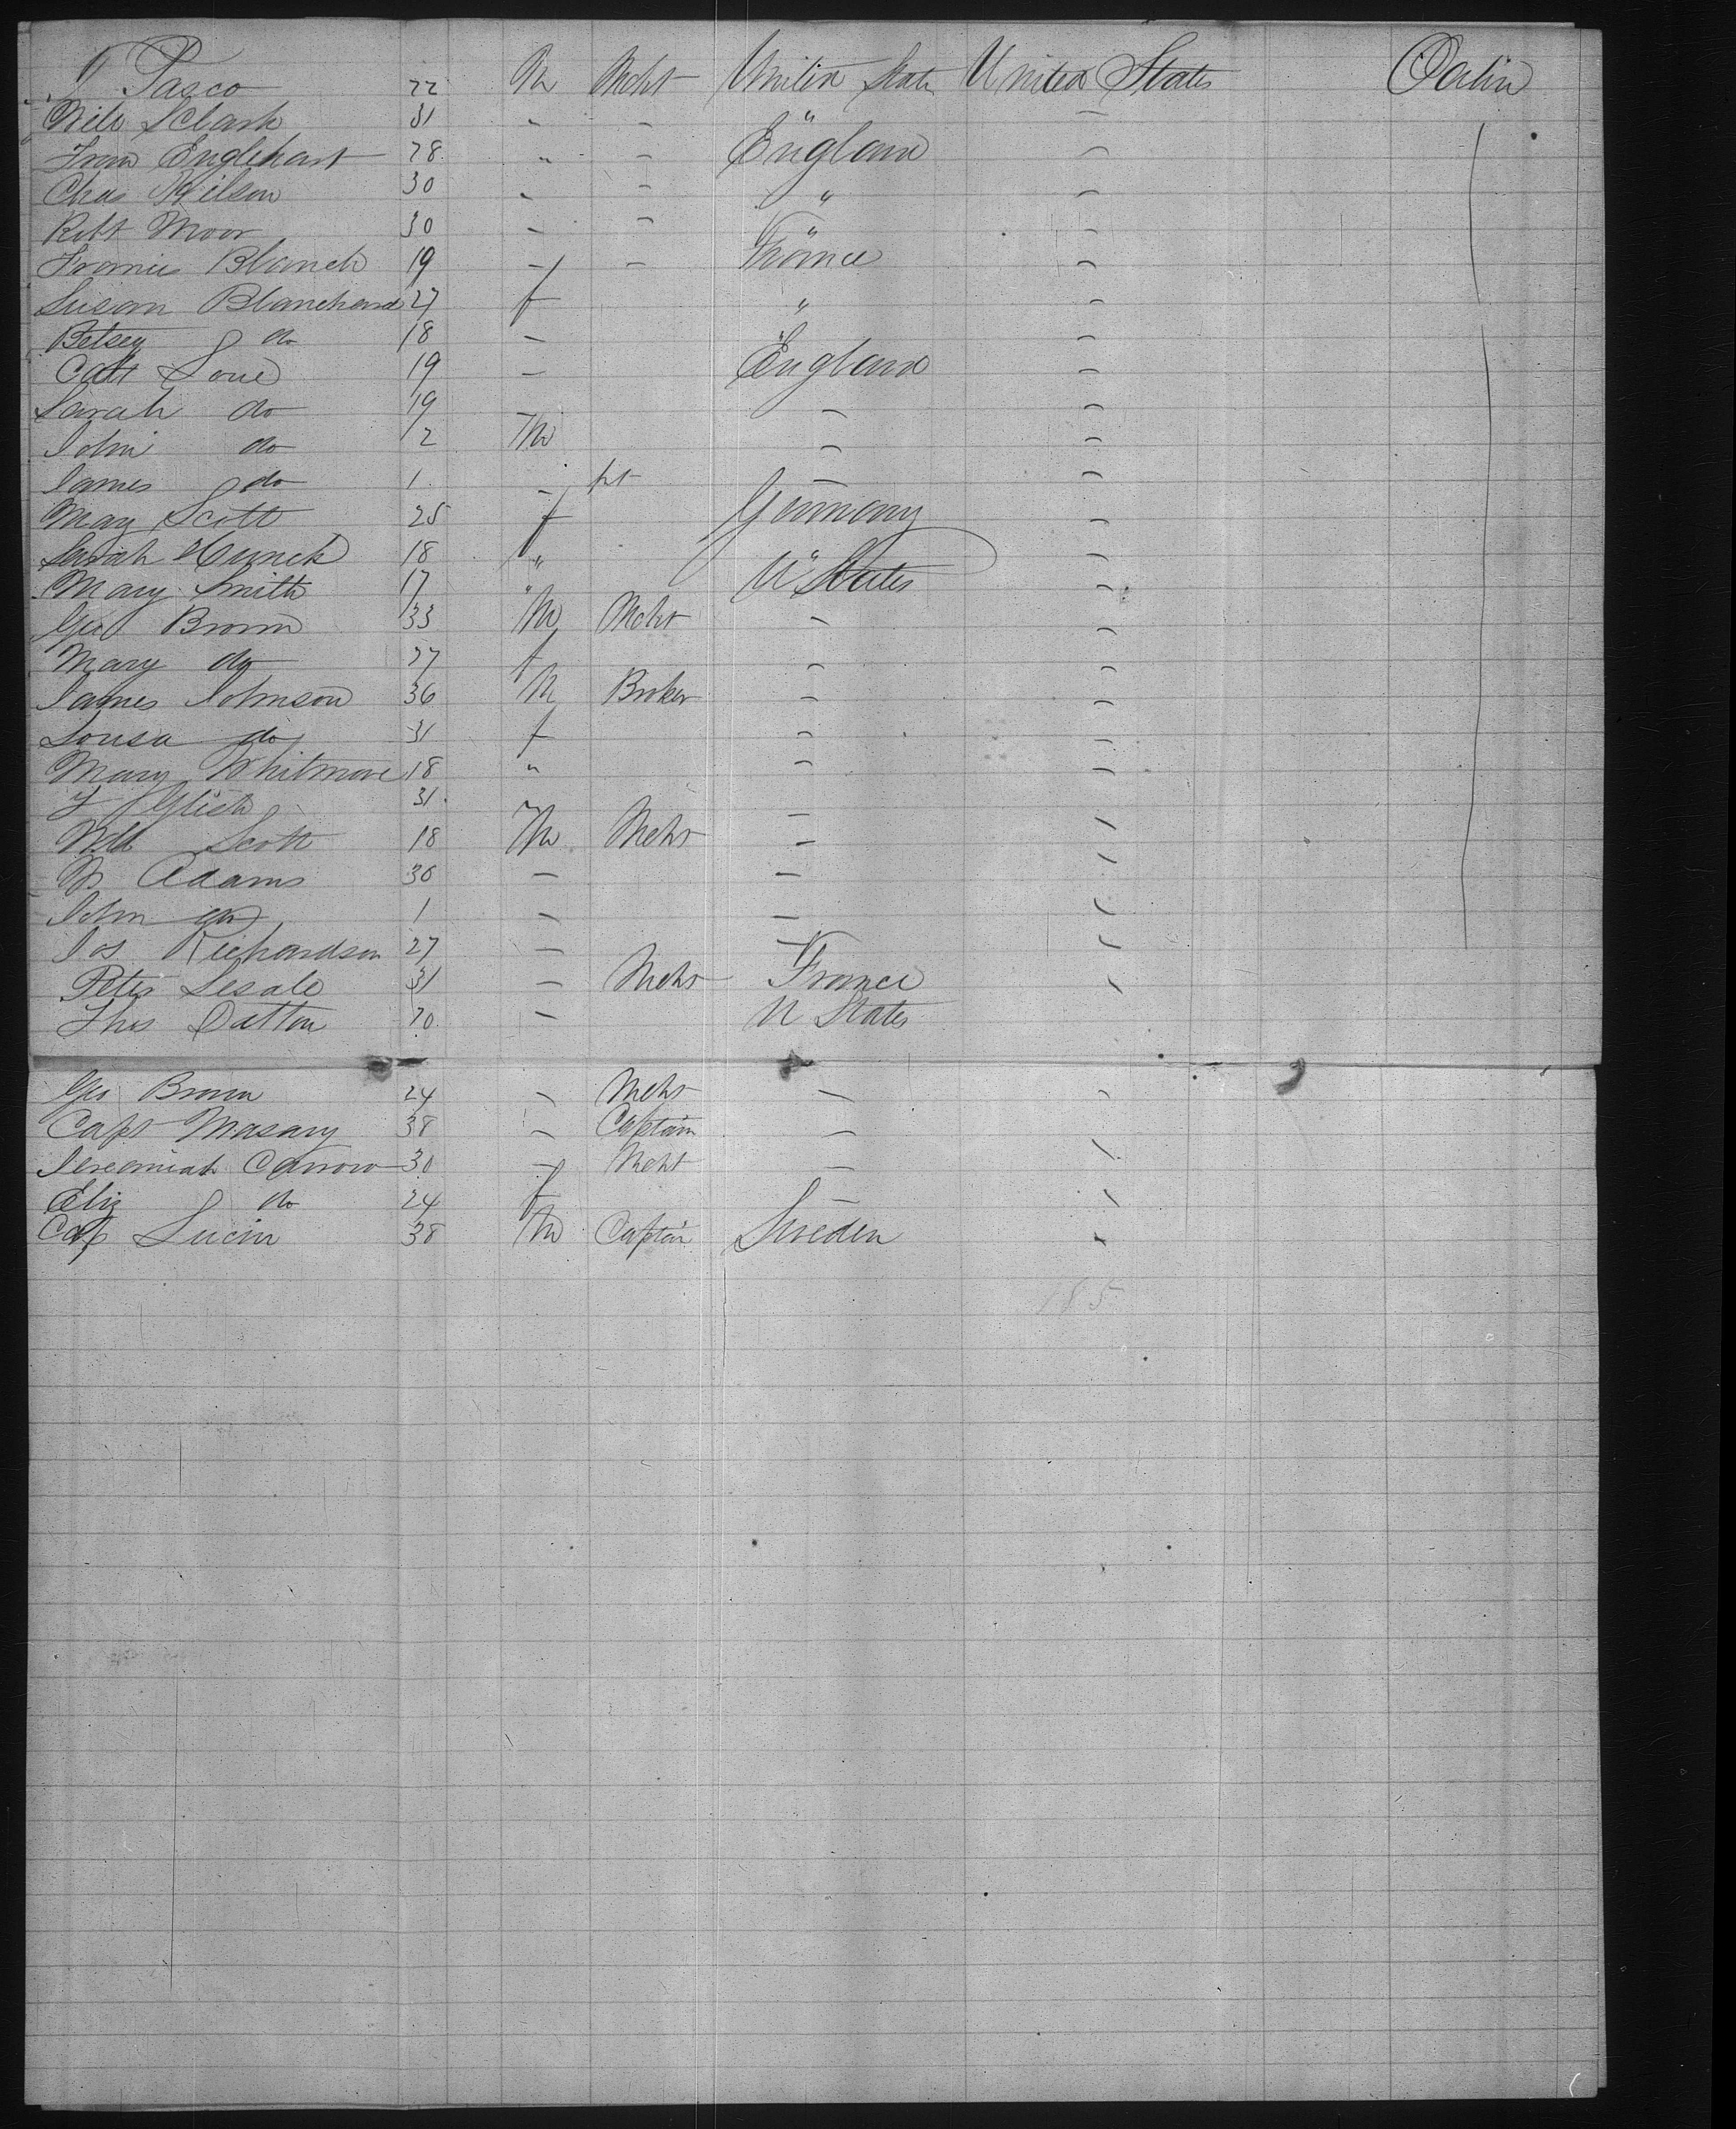 J Pasco 22 M Mcht United State United States
31 " " " "
Fran Englehart 28 " " England "
Chas Wilson 30 " " " "
Robt Moor 30 " " " "
Blanch 19 " " France "
Susan Blanchard 27 f " "
Betsey do 18 " " "
Cath Love 19 " England "
Sarah do 19 " " "
John do 2 M " "
James do 1 " " "
May Scott 25 f Germany "
Sarah 18 " " "
Mary Smith 17 " U States "
Geo Brown 33 M Mcht " "
Mary do 27 f " "
James Johnson 36 M Broker " "
Lousa do 31 f " "
Mary Whitmore 18 " " "
31 "
Scott 18 M Mcht " "
Adams 36 " " "
John do 1 " " "
Jos Richardson 27 " " "
Peter Lesale 31 " Mcht France "
Thos Dutton 20 " U States
Geo Brown 24 " Mcht " "
Capt Masary 38 " Captain " "
Jeremiah Carrow 30 " Mcht " "
Eliz do 24 f " "
Cap Lucin 38 M Captain Sweden "
185